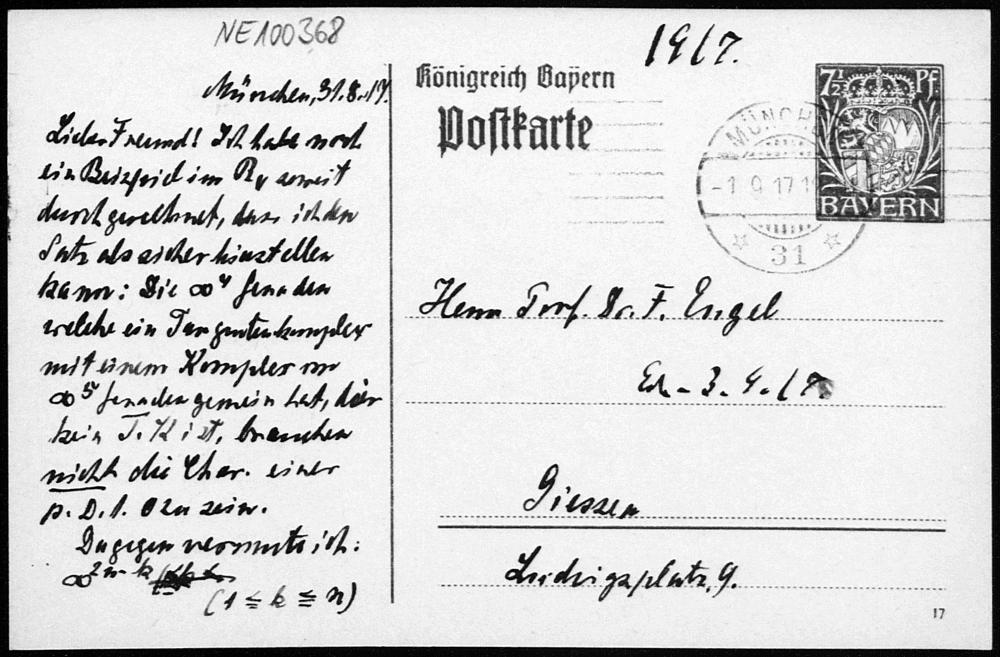 NE100368
1917.
München, 31.8.17.
Lieber Freund! Ich habe noch
ein Beispiel im R₄ soweit
durchgerechnet, dass ich den
Satz als sicher hinstellen
kann: Die ∞⁴ Geraden
welche ein Tangentenkomplex
mit einem Komplex von
∞⁵ Geraden gemein hat, der
kein T.K ist, brauchen
nicht die Char. einer
p. D. 1. O zu sein.
Dagegen vermute ich:
∞²ⁿ⁻ᵏ
(1 ≦ k ≦ n)
Königreich Bayern
Postkarte
7½ Pf.
BAYERN
MÜNCHE
-1 9 17 1
31
Herrn Prof. Dr. F. Engel
Er. - 3. 9. 17.
Giessen
Ludwigsplatz, 9.
17